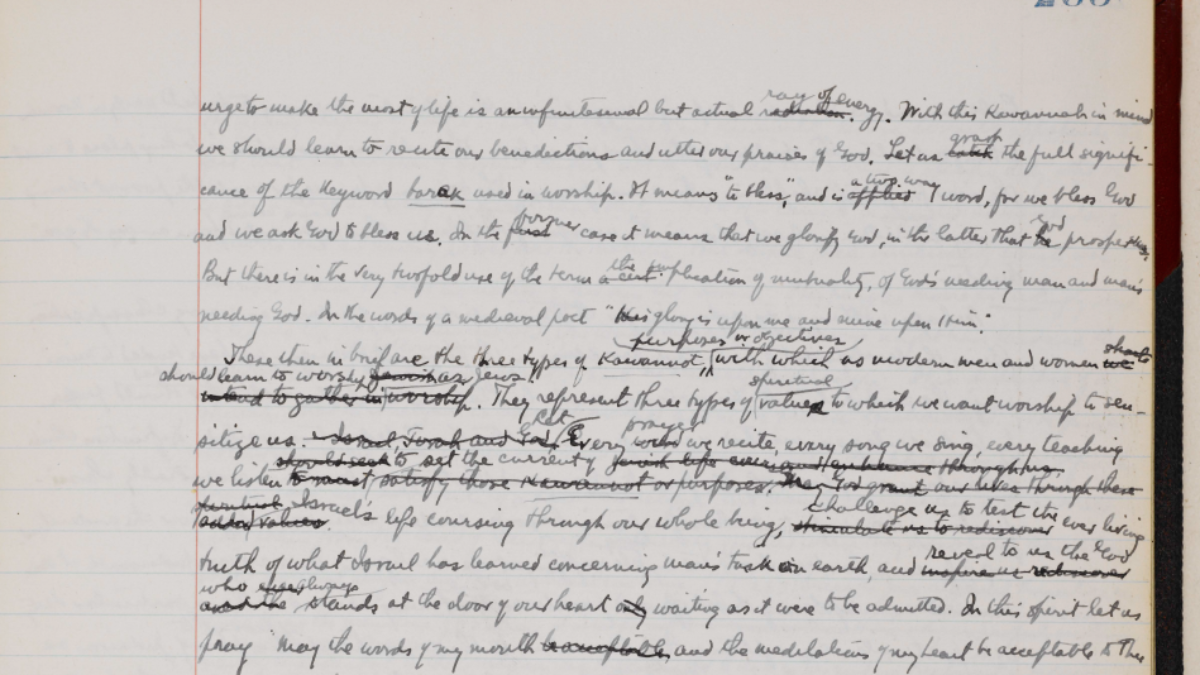 ray of energy
urge to make the most of life is an infinitesimal but actual radiation. With this Kawannah in mind
grasp
we should learn to recite our benedictions and utter our praises of God. Let us the full signifi-
a two way
cance of the keyword barak used in worship. It means "to bless", and is applied word, for we bless God
former God
and we ask God to bless us. In the first case it means that we glorify God, in the latter that he
the
But there is in the very twofold use of the term implication of mutuality, of God's needing man and man's
needing God. In the words of a medieval poet "His glory is upon me and mine upon Him."
purposes or objectives
These then in brief are the three types of Kawannot, with which as modern men and women we
should learn to worship as Jews
spiritual
intend to gather in worship. They represent three types of values to which we want worship to sen-
Let prayer
sitize us. Israel Torah and God. Every word we recite, every song we sing, every teaching
should seek to set the current of Jewish life through us
we listen to must satisfy those Kawannot or purposes. May God grant our lives through these
spiritual Israel's life coursing through our whole being, challenge us to test the ever living
added values. stimulate us to rediscover
reveal to us the God
truth of what Israel has learned concerning man's task on earth, and inspire us rediscover
who always
stands at the door of our heart only waiting as it were to be admitted. In this spirit let us
pray "May the words of my mouth be acceptable, and the meditations of my heart be acceptable to Thee